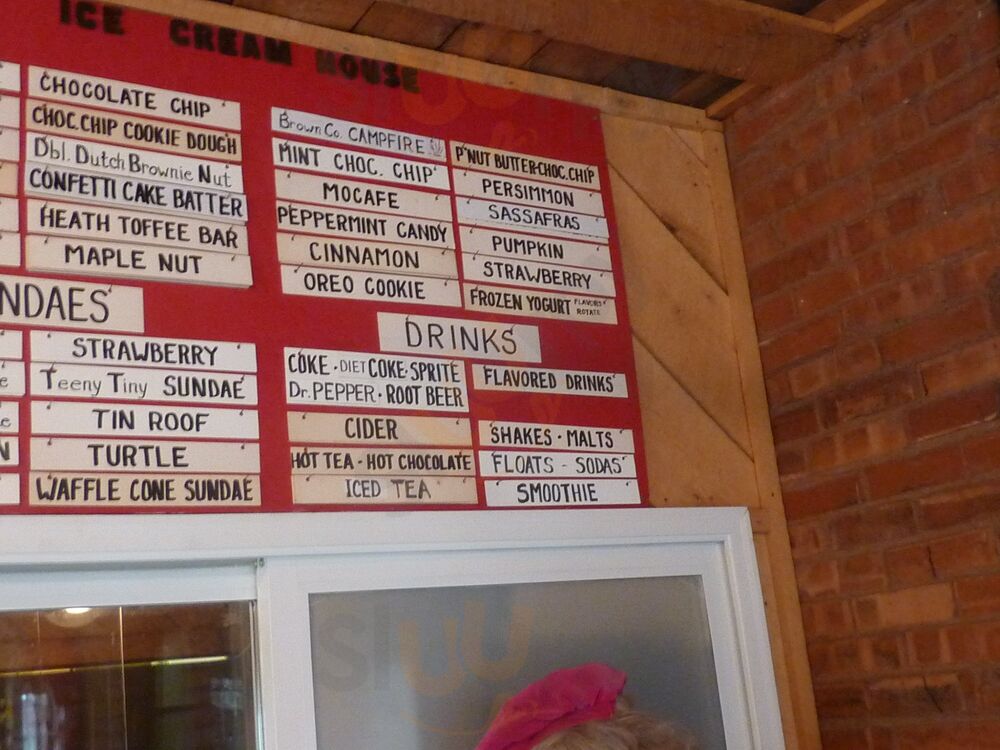 ICE CREAM HOUSE
CHOCOLATE CHIP
CHOC.CHIP COOKIE DOUGH
Dbl. Dutch Brownie Nut
CONFETTI CAKE BATTER
HEATH TOFFEE BAR
MAPLE NUT
Brown Co. CAMPFIRE
MINT CHOC. CHIP
MOCAFE
PEPPERMINT CANDY
CINNAMON
OREO COOKIE
P'NUT BUTTER-CHOC.CHIP
PERSIMMON
SASSAFRAS
PUMPKIN
STRAWBERRY
FROZEN YOGURT FLAVORS ROTATE
NDAES
STRAWBERRY
Teeny Tiny SUNDAE
TIN ROOF
TURTLE
WAFFLE CONE SUNDAE
DRINKS
COKE - DIET COKE - SPRITE
Dr. PEPPER - ROOT BEER
CIDER
HOT TEA - HOT CHOCOLATE
ICED TEA
FLAVORED DRINKS
SHAKES - MALTS
FLOATS - SODAS
SMOOTHIE
sluu